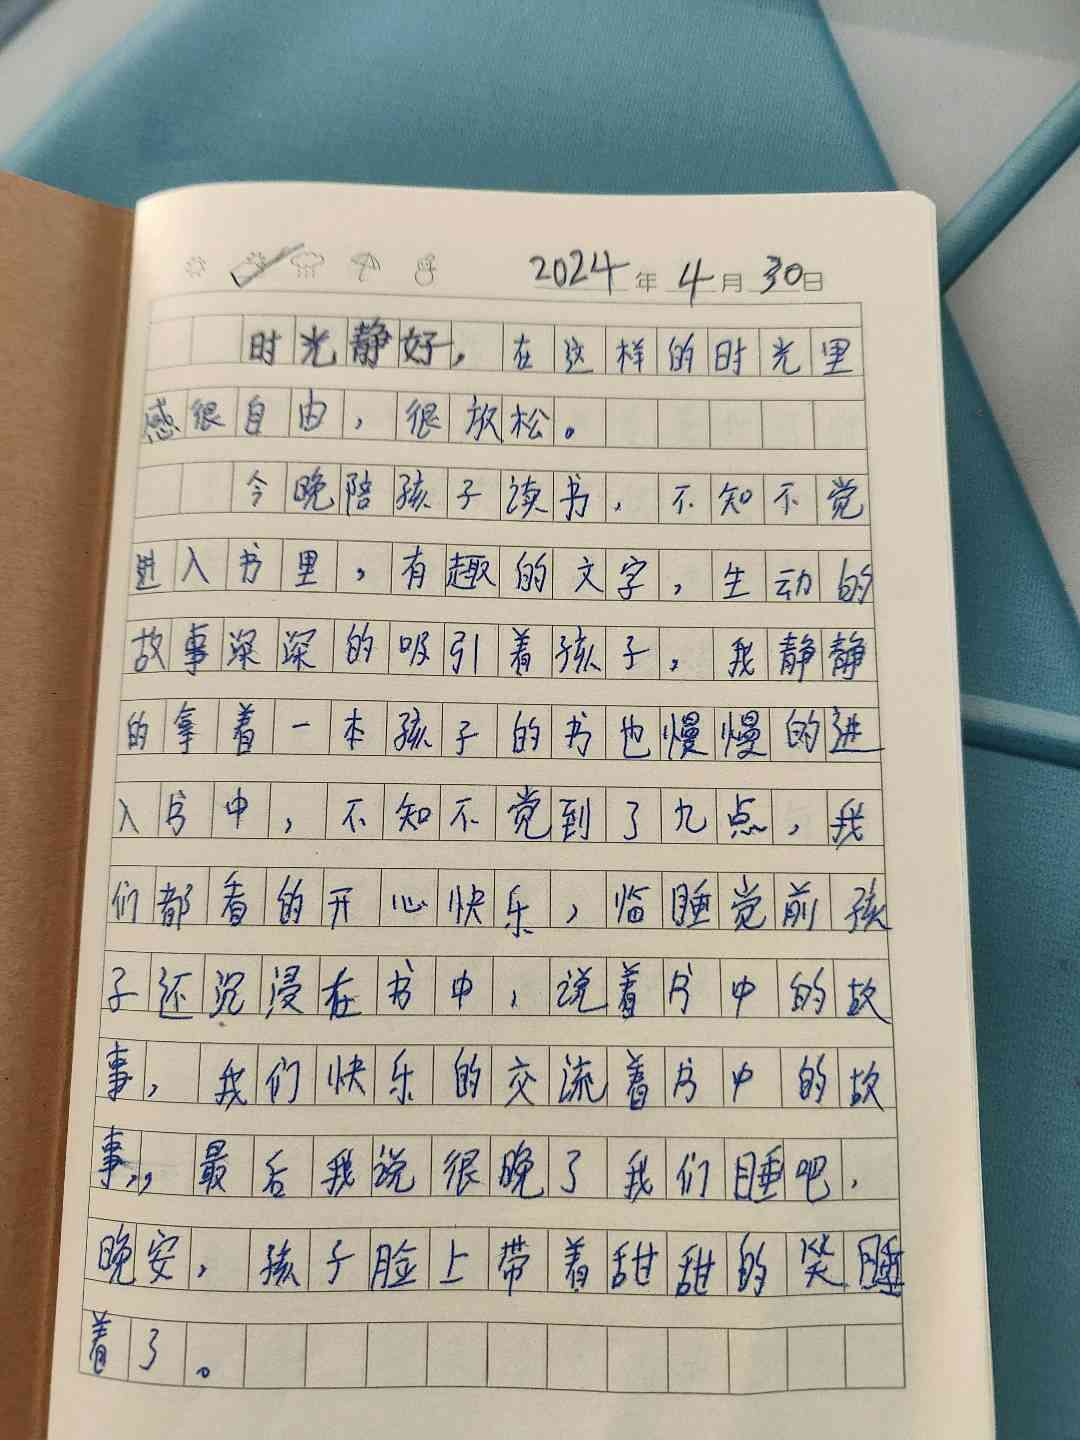 2024年4月30日
时光静好，在这样的时光里
感很自由，很放松。
今晚陪孩子读书，不知不觉
进入书里，有趣的文字，生动的
故事深深的吸引着孩子，我静静
的拿着一本孩子的书也慢慢的进
入书中，不知不觉到了九点，我
们都看的开心快乐，临睡觉前孩
子还沉浸在书中，说着书中的故
事，我们快乐的交流着书中的故
事，，最后我说很晚了我们睡吧，
晚安，孩子脸上带着甜甜的笑睡
着了。